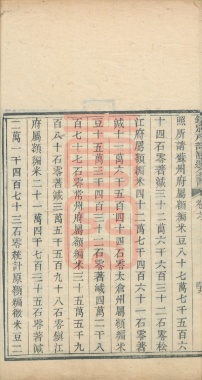 照所請蘇州府屬額編米豆八十七萬七千五百六
十四石零著減三十二萬六千六百三十二石零松
江府屬額編米四十二萬七千四百六十一石零著
減十一萬六千五百四十四石零太倉州屬額編米
豆十五萬三千四百三十二石零著減四萬二千八
百七十七石零常州府屬額編米三十五萬五千九
百八十石零著減三萬五千五百九十八石零鎮江
府屬額編米二十一萬四千七百三十五石零著減
二萬一千四百七十三石零統計原額編徵米豆二